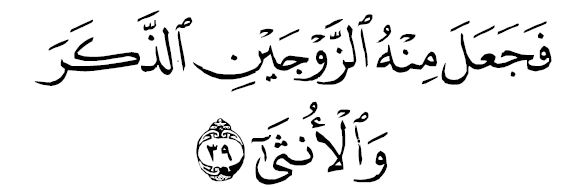 فَجَعَلَ مِنْهُ ٱلزَّوْجَيْنِ ٱلذَّكَرَ
وَٱلْأُنثَىٰٓ ٣٩